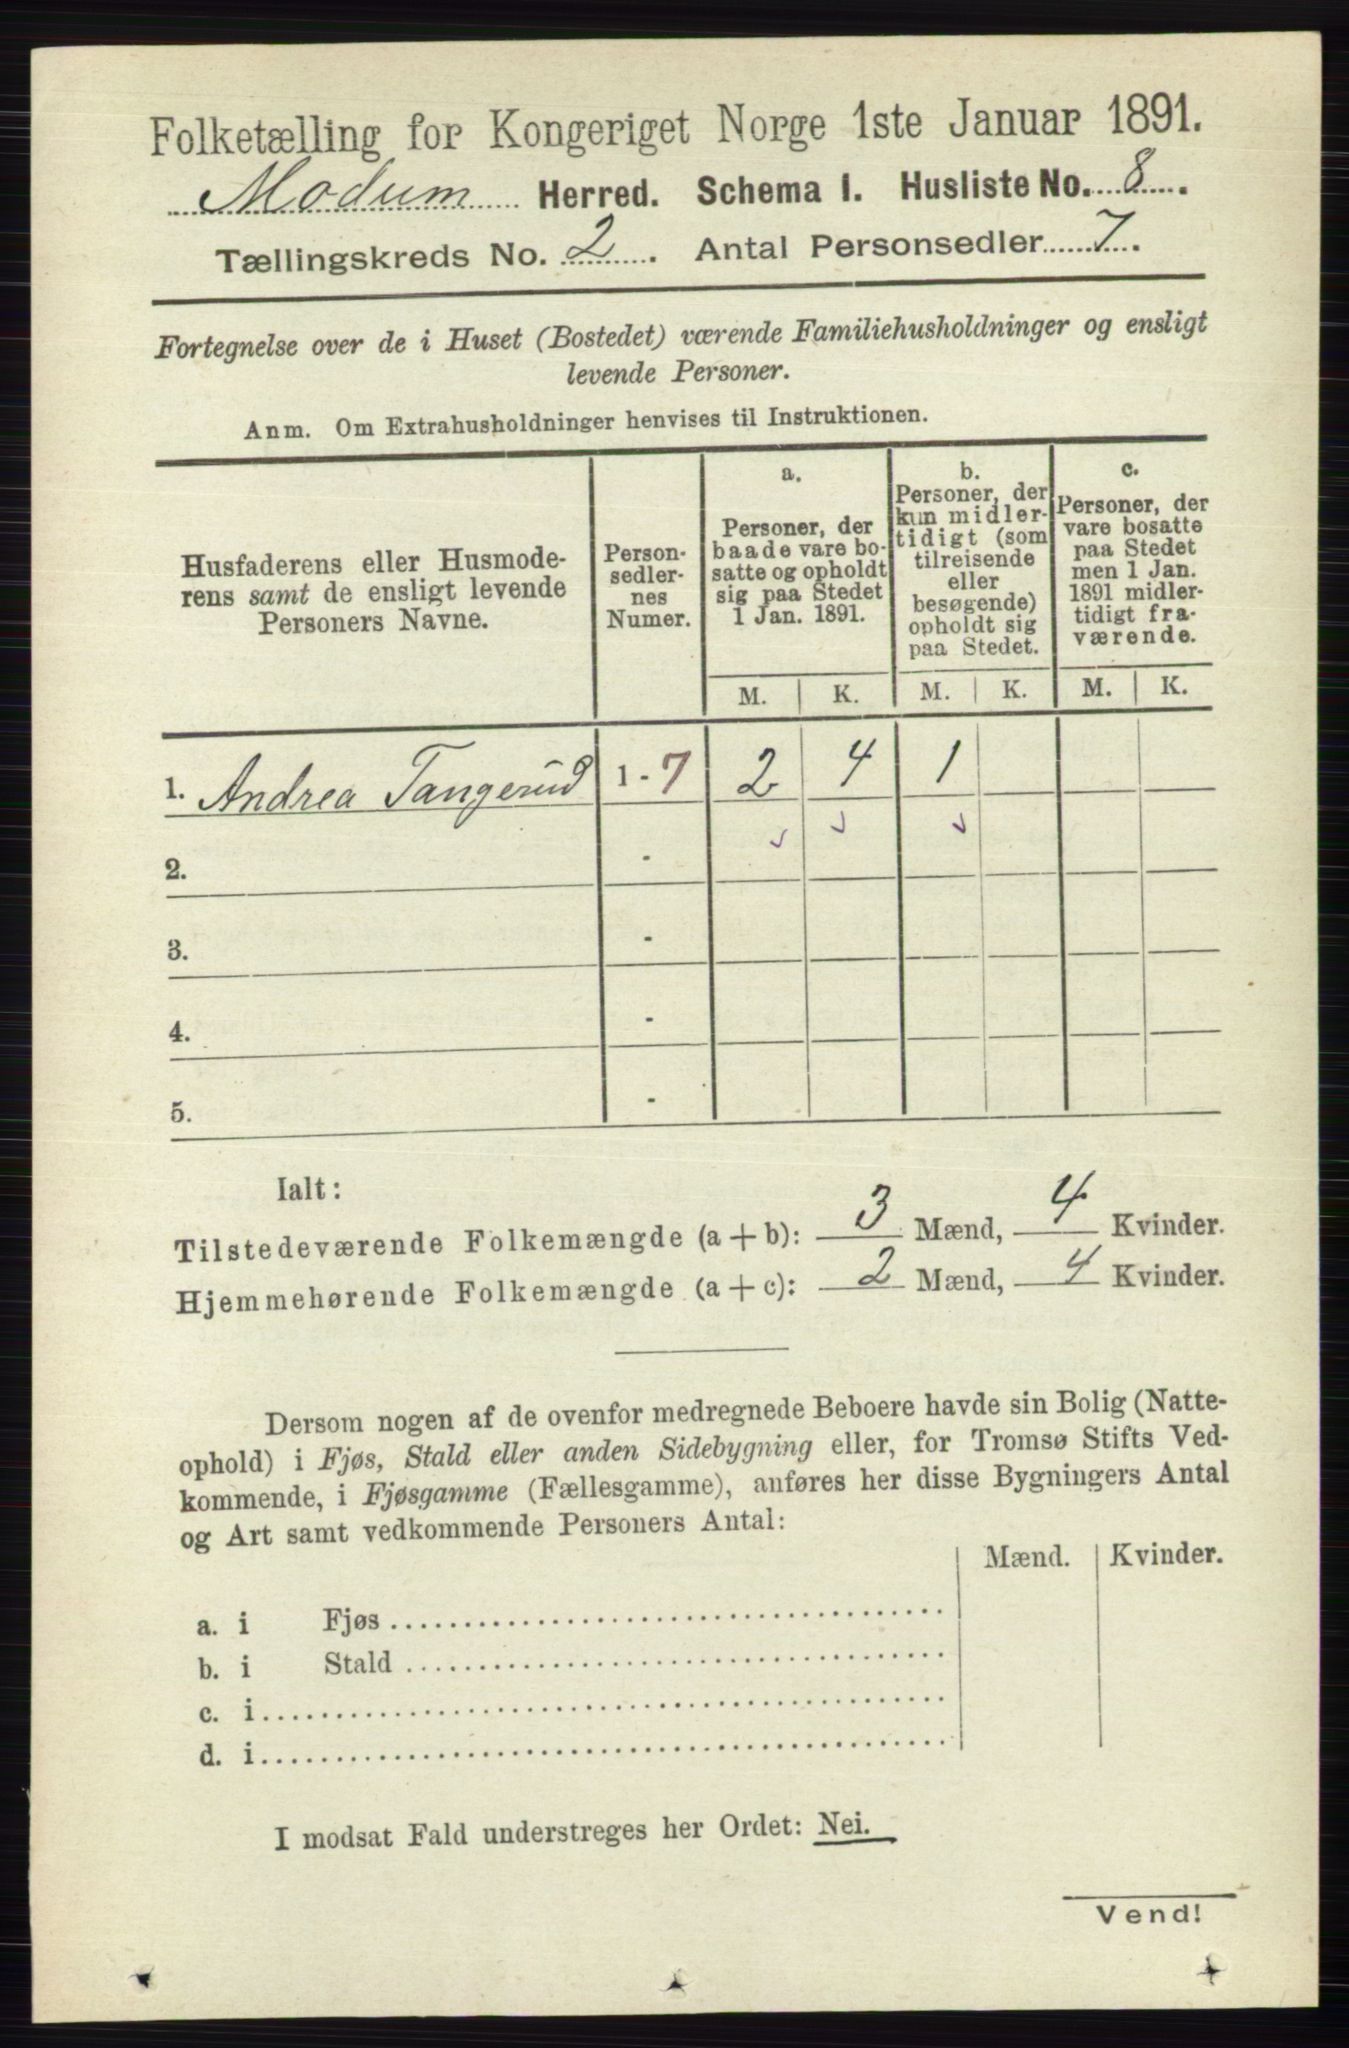 Folketælling for Kongeriget Norge 1ste Januar 1891.
Modum Herred. Schema I. Husliste No. 8.
Tællingskreds No. 2. Antal Personsedler 7.
Fortegnelse over de i Huset (Bostedet) værende Familiehusholdninger og ensligt
levende Personer.
Anm. Om Extrahusholdninger henvises til Instruktionen.
Husfaderens eller Husmode-
rens samt de ensligt levende
Personers Navne.
Person-
sedler-
nes
Numer.
a.
Personer, der
baade vare bo-
satte og opholdt
sig paa Stedet
1 Jan. 1891.
b.
Personer, der
kun midler-
tidigt (som
tilreisende
eller
besøgende)
opholdt sig
paa Stedet.
c.
Personer, der
vare bosatte
paa Stedet
men 1 Jan.
1891 midler-
tidigt fra-
værende.
M. K. M. K. M. K.
1. Andrea Tangerud 1 - 7 2 4 1
2. -
3. -
4. -
5. -
Ialt:
Tilstedeværende Folkemængde (a + b): 3 Mænd, 4 Kvinder.
Hjemmehørende Folkemængde (a + c): 2 Mænd, 4 Kvinder.
Dersom nogen af de ovenfor medregnede Beboere havde sin Bolig (Natte-
ophold) i Fjøs, Stald eller anden Sidebygning eller, for Tromsø Stifts Ved-
kommende, i Fjøsgamme (Fællesgamme), anføres her disse Bygningers Antal
og Art samt vedkommende Personers Antal:
Mænd. Kvinder.
a. i Fjøs
b. i Stald
c. i
d. i
I modsat Fald understreges her Ordet: Nei.
Vend!